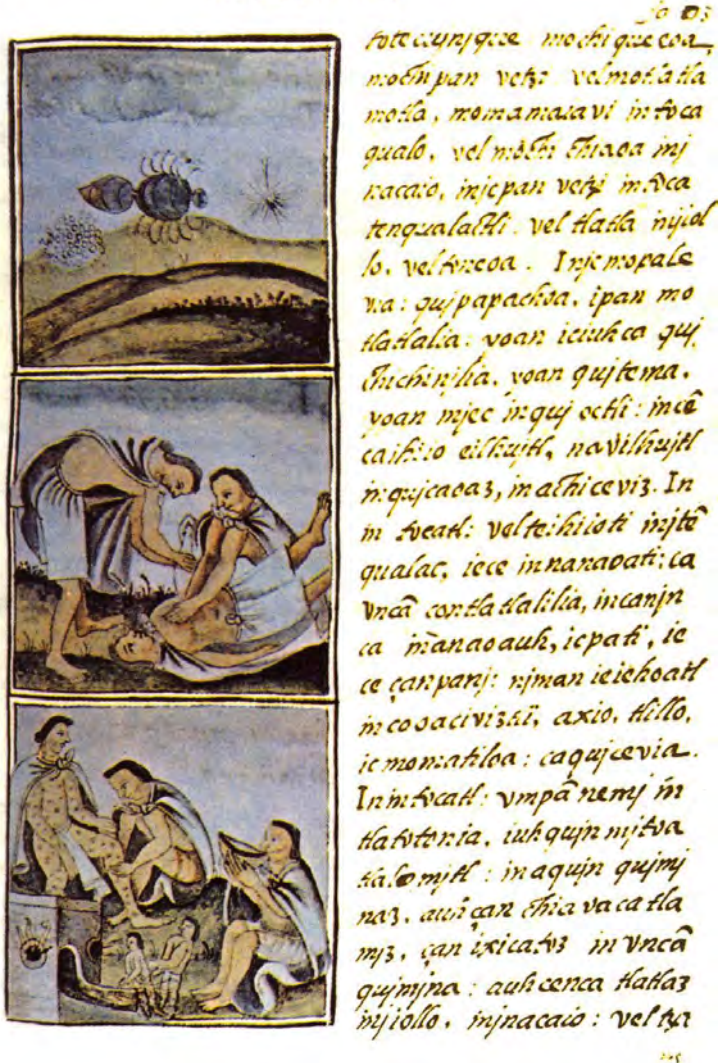 toteixcuinique mochiquecoa,
mochipan vetzi: velmotlatla
motla, momamaçavi in toca
qualo, vel mochi chiaoa inj
nacaio, injcpan vetzi in toca
tenqualactli. vel tlatla injiol
lo, veltoneoa. Injc mopale
via: quipapachoa, ipan mo
tlatlalia: yoan iciuhca quj
chichinjlia, yoan qujtema,
yoan mjec inquj octli: in cẽ
ca ihiio eilhujtl, navilhujtl
in qujcaoaz, in achi ceviz. In
in tocatl: vel teihiioti injtẽ
qualac, iece in nanaoati: ca
vncã contlatlalilia, in canjn
ca inanaoauh, ic pati, ie
ce çan panj: njman ie iehoatl
in coaacivizti, axio, tlillo,
ic momatiloa: ca qujcevia.
Inin tocatl: vmpã nemj in
tlatotonia, iuhqujn mjtoa
tlalomjtl: in aqujn qujmj
naz, auh çan chiavacatla
mjz, çan ixicatoz in vncã
qujmjna: auh cenca tlatlaz
injiollo, injnacaio: vel tza